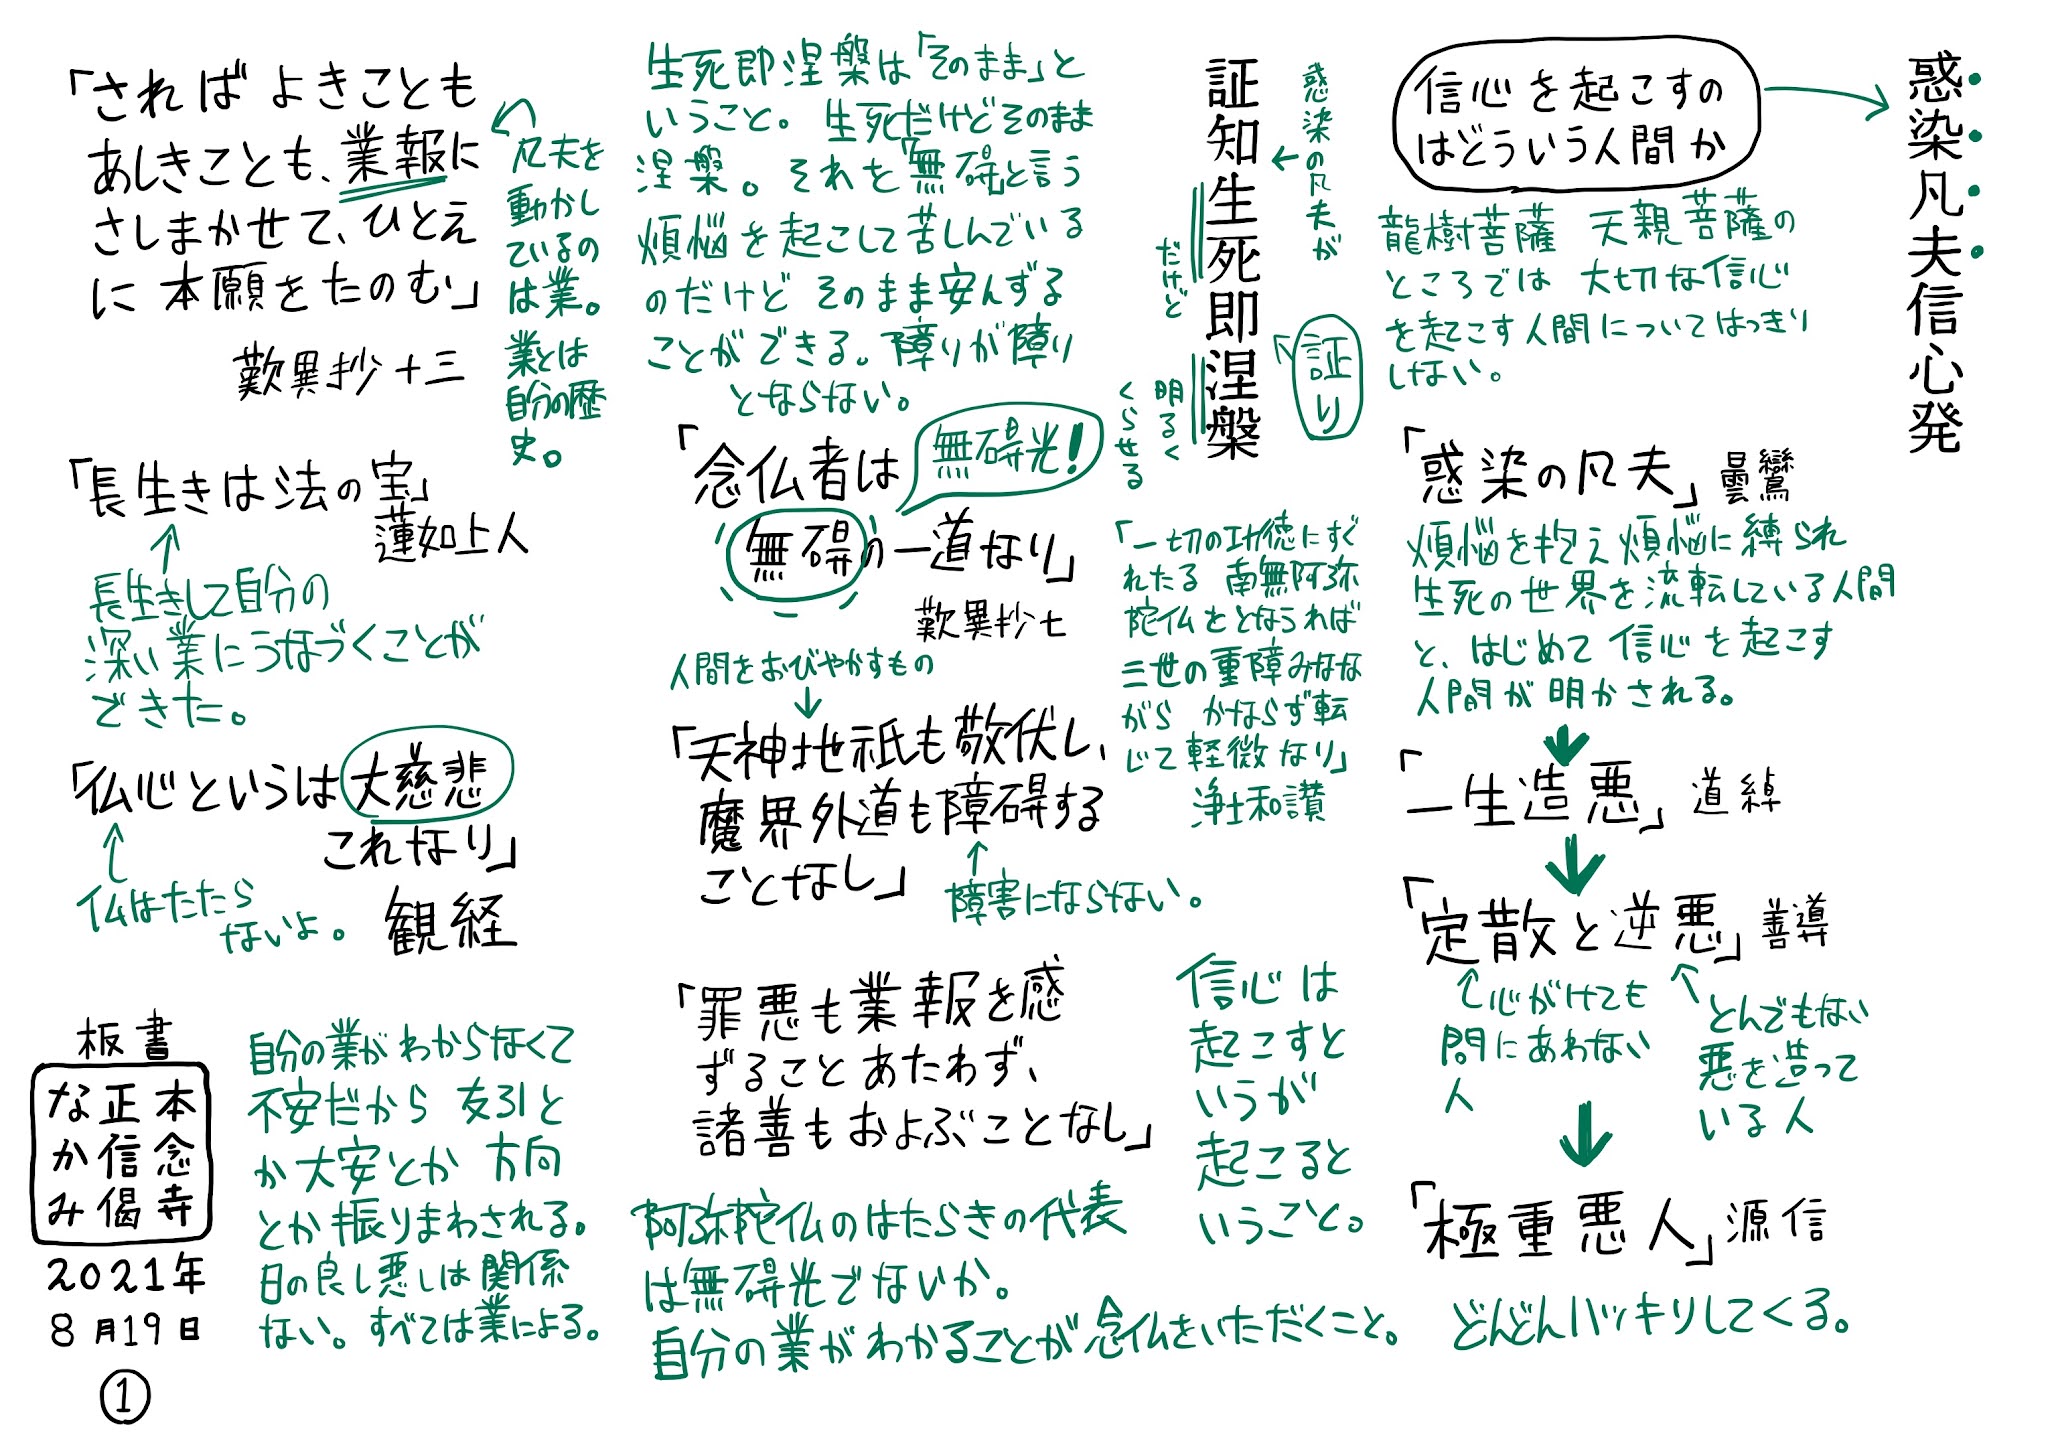 惑染凡夫信心発
信心を起こすの
はどういう人間か
龍樹菩薩 天親菩薩の
ところでは 大切な信心
を起こす人間についてはっきり
しない。
「惑染の凡夫」曇鸞
煩悩を抱え煩悩に縛られ
生死の世界を流転している人間
と、はじめて信心を起こす
人間が明かされる。
「一生造悪」道綽
「定散と逆悪」善導
心がけても
間にあわない
人
とんでもない
悪を造って
いる人
「極重悪人」源信
どんどんハッキリしてくる。
証知生死即涅槃
惑染の凡夫が
だけど
証り
明るく
くらせる
「一切の功徳にすぐ
れたる 南無阿弥
陀仏をとなうれば
三世の重障みなな
がら かならず転
じて軽微なり」
浄土和讃
信心は
起こすと
いうが
起こると
いうこと。
生死即涅槃は「そのまま」と
いうこと。生死だけどそのまま
涅槃。それを「無碍」と言う
煩悩を起こして苦しんでいる
のだけど そのまま安んずる
ことができる。障りが障り
とならない。
「念仏者は
無碍の一道なり」
無碍光!
歎異抄七
人間をおびやかすもの
「天神地祇も敬伏し、
魔界外道も障碍する
ことなし」
障害にならない。
「罪悪も業報を感
ずることあたわず、
諸善もおよぶことなし」
阿弥陀仏のはたらきの代表
は無碍光でないか。
自分の業がわかることが念仏をいただくこと。
「さればよきことも
あしきことも、業報に
さしまかせて、ひとえ
に本願をたのむ」
歎異抄十三
凡夫を
動かし
ているの
は業。
業とは
自分の歴
史。
「長生きは法の宝」
蓮如上人
長生きして自分の
深い業にうなづくことが
できた。
「仏心というは大慈悲
これなり」
観経
仏はたたら
ないよ。
自分の業がわからなくて
不安だから 友引と
か大安とか 方向
とか振りまわされる。
日の良し悪しは関係
ない。すべては業による。
板書
本念寺
正信偈
なかみ
2021年
8月19日
①